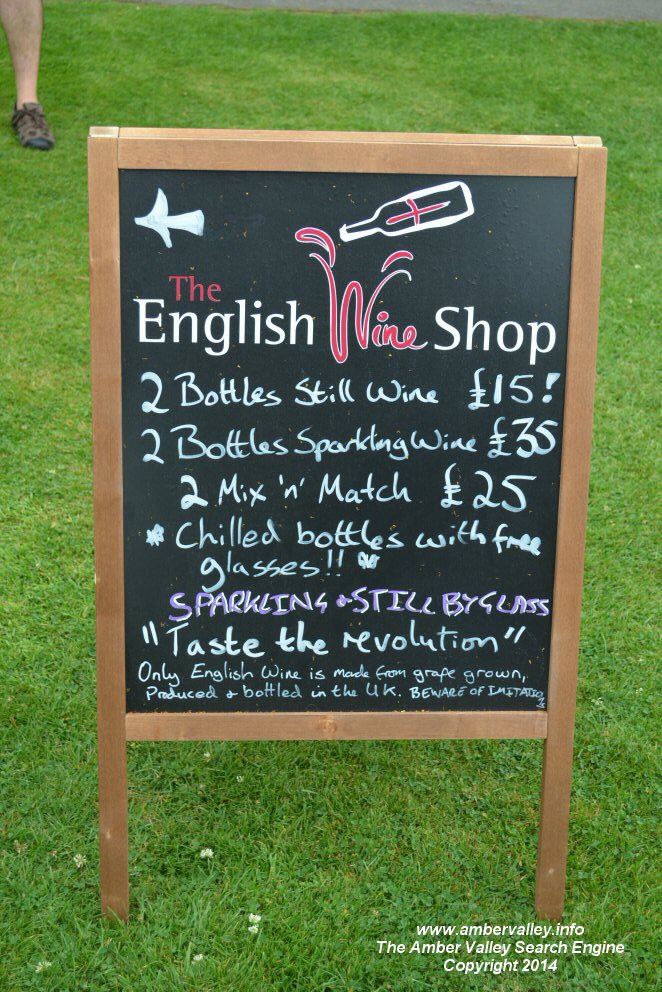 The
English Wine Shop
2 Bottles Still Wine £15!
2 Bottles Sparkling Wine £35
2 Mix 'n' Match £25
* Chilled bottles with free
glasses!! *
SPARKLING & STILL BY GLASS
"Taste the revolution"
Only English Wine is made from grape grown,
Produced & bottled in the U.K. BEWARE OF IMITATIONS
www.ambervalley.info
The Amber Valley Search Engine
Copyright 2014